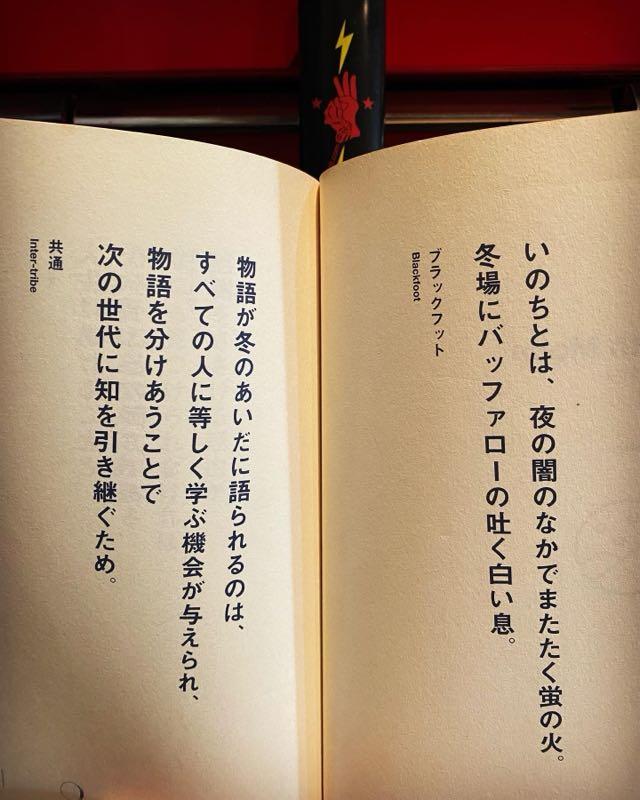 いのちとは、夜の闇のなかでまたたく蛍の火。
冬場にバッファローの吐く白い息。
ブラックフット
Blackfoot
物語が冬のあいだに語られるのは、
すべての人に等しく学ぶ機会が与えられ、
物語を分けあうことで
次の世代に知を引き継ぐため。
共通
Inter-tribe